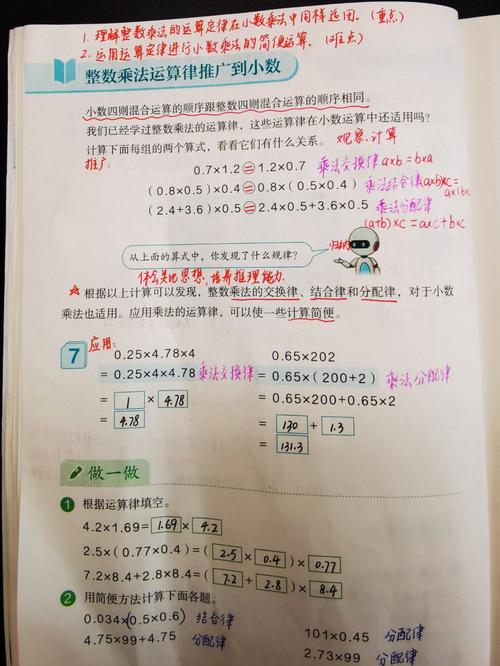 1. 理解整数乘法的运算定律在小数乘法中同样适用。(重点)
2. 运用运算定律进行小数乘法的简便运算。(难点)
整数乘法运算律推广到小数
小数四则混合运算的顺序跟整数四则混合运算的顺序相同。
我们已经学过整数乘法的运算律，这些运算律在小数运算中还适用吗？
计算下面每组的两个算式，看看它们有什么关系。 观察、计算
推广:
0.7×1.2=1.2×0.7 乘法交换律 a×b=b×a
(0.8×0.5)×0.4=0.8×(0.5×0.4) 乘法结合律(a×b)×c=a×(b×c)
(2.4+3.6)×0.5=2.4×0.5+3.6×0.5 乘法分配律
(a+b)×c=a×c+b×c
从上面的算式中，你发现了什么规律？ 归纳
体会类比思想，培养推理能力.
☆ 根据以上计算可以发现，整数乘法的交换律、结合律和分配律，对于小数
乘法也适用。应用乘法的运算律，可以使一些计算简便。
应用:
7
0.25×4.78×4 0.65×202
=0.25×4×4.78 乘法交换律 =0.65×(200+2) 乘法分配律
=1×4.78 =0.65×200+0.65×2
=4.78 =130+1.3
=131.3
做一做
1 根据运算律填空。
4.2×1.69=1.69×4.2
2.5×(0.77×0.4)=(2.5×0.4)×0.77
7.2×8.4+2.8×8.4=(7.2+2.8)×8.4
2 用简便方法计算下面各题。
0.034×(0.5×0.6) 结合律 101×0.45 分配律
4.75×99+4.75 分配律 2.73×99 分配律